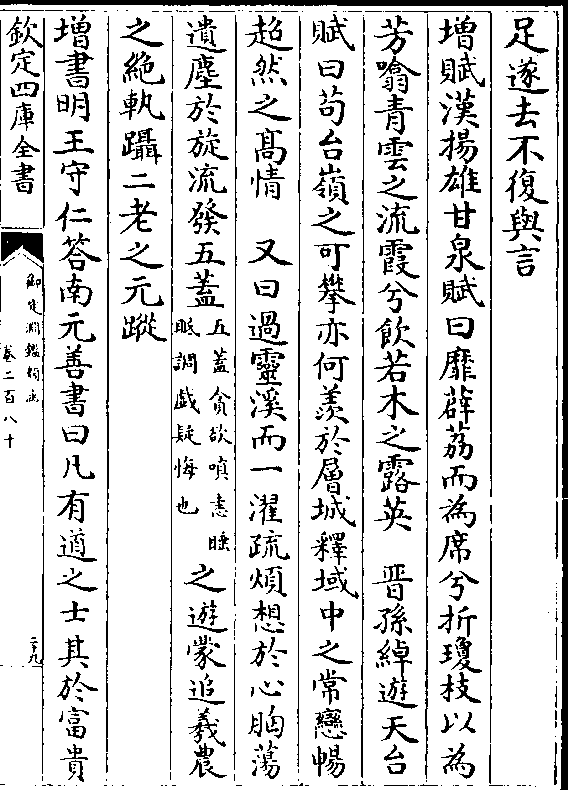 足遂去不復與言
增賦漢揚雄甘泉賦曰靡薜荔而為席兮折瓊枝以為
芳噏青雲之流霞兮飲若木之露英　晉孫綽遊天台
賦曰苟台嶺之可攀亦何羨於層城釋域中之常戀暢
超然之髙情　又曰過靈溪而一濯疏煩想於心胸蕩
遺塵於旋流發五蓋五蓋貪欲嗔恚睡眠調戲疑悔也之遊蒙追羲農
之絶軌躡二老之元蹤
增書明王守仁答南元善書曰凡有道之士其於富貴
欽定四庫全書
御定淵鑑類函
卷二百八十
二十九